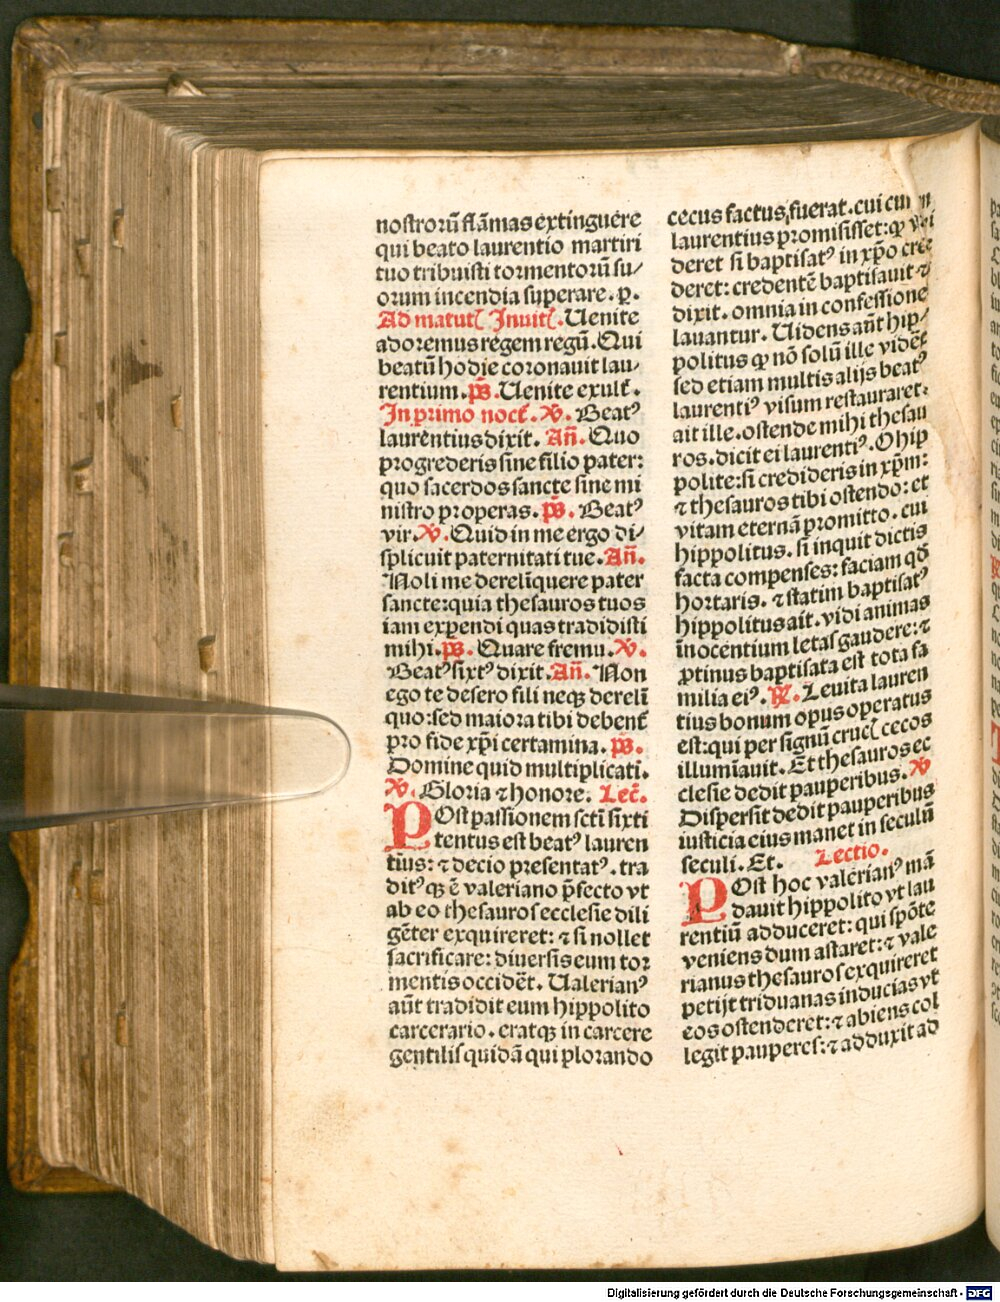 nostrorū flāmas extinguere
qui beato laurentio martiri
tuo tribuisti tormentorū su/
orum incendia superare. p.
Ad matutꝭ Inuitꝭ. Uenite
adoremus regem regū. Qui
beatū hodie coronauit lau/
rentium. ps̄. Uenite exulꝭ.
In primo nocꝭ. ℣. Beatꝰ
laurentius dixit. An̄. Quo
progrederis sine filio pater:
quo sacerdos sancte sine mi
nistro properas. ps̄. Beatꝰ
vir. ℣. Quid in me ergo di/
splicuit paternitati tue. An̄.
Noli me derelīquere pater
sancte: quia thesauros tuos
iam expendi quas tradidisti
mihi. ps̄. Quare fremu. ℣.
Beatꝰ sixtꝰ dixit. An̄. Non
ego te desero fili neqꝫ derelī
quo: sed maiora tibi debent̄
pro fide xp̄i certamina. ps̄.
Domine quid multiplicati.
℣. Gloria ⁊ honore. Lec̄.
POst passionem scti sixti
tentus est beatꝰ lauren
tius: ⁊ decio presentatꝰ. tra
ditꝰqꝫ ē valeriano p̄fecto vt
ab eo thesauros ecclesie dili
gēter exquireret: ⁊ si nollet
sacrificare: diuersis eum tor
mentis occidēt. Ualerianꝰ
aūt tradidit eum hippolito
carcerario. eratqꝫ in carcere
gentilis quidā qui plorando
cecus factus fuerat. cui cum
laurentius promisisset: ꝙ
deret si baptisatꝰ in xp̄o cre
deret: credentē baptisauit ⁊
dixit. omnia in confessione
lauantur. Uidens aūt hip/
politus ꝙ nō solū ille videt̄
sed etiam multis alijs beatꝰ
laurentiꝰ visum restauraret.
ait ille. ostende mihi thesau
ros. dicit ei laurentiꝰ. O hip
polite: si credideris in xp̄m:
⁊ thesauros tibi ostendo: et
vitam eternā promitto. cui
hippolitus. si inquit dictis
facta compenses: faciam qd̄
hortaris. ⁊ statim baptisatꝰ
hippolitus ait. vidi animas
īnocentium letas gaudere: ⁊
ꝓtinus baptisata est tota fa
milia eiꝰ. ℟. Leuita lauren
tius bonum opus operatus
est: qui per signū crucꝭ cecos
illumīauit. Et thesauros ec
clesie dedit pauperibus. ℣
Dispersit dedit pauperibus
iusticia eius manet in seculū
seculi. Et. Lectio.
POst hoc valerianꝰ mā
dauit hippolito vt lau
rentiū adduceret: qui spōte
veniens dum astaret: ⁊ vale
rianus thesauros exquireret
petijt triduanas inducias vt
eos ostenderet: ⁊ abiens col
legit pauperes: ⁊ adduxit ad
Digitalisierung gefördert durch die Deutsche Forschungsgemeinschaft - DFG